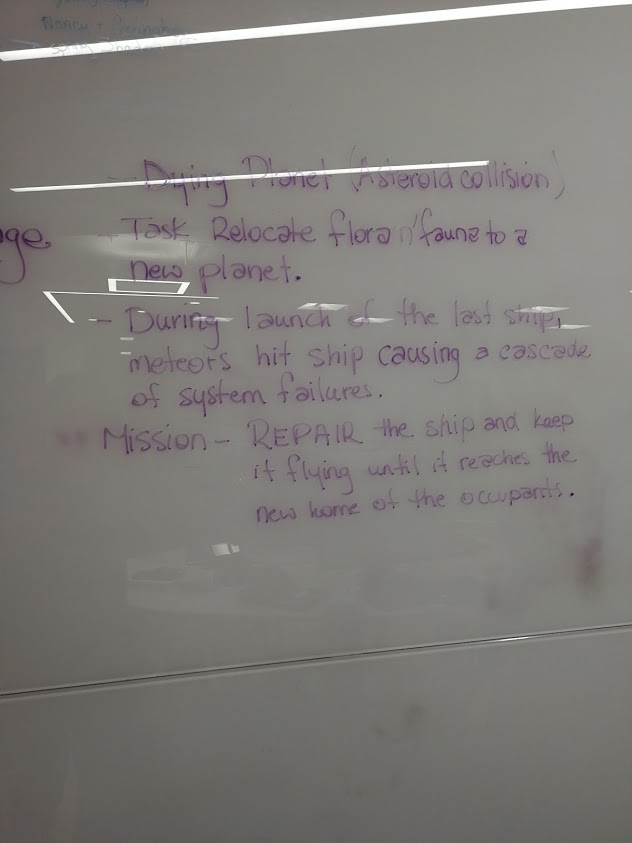 Nancy
- Dying Planet (Asteroid collision)
- Task Relocate flora n' fauna to a
new planet.
- During launch of the last ship,
meteors hit ship causing a cascade
of system failures.
Mission - REPAIR the ship and keep
it flying until it reaches the
new home of the occupants.